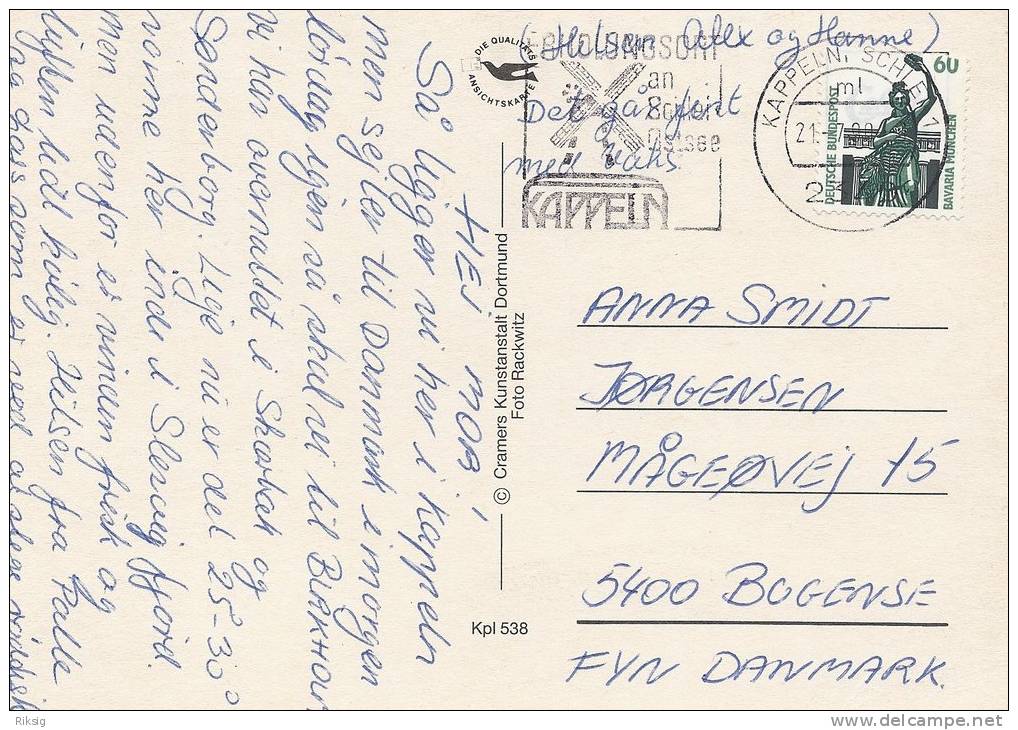 HEJ MOR!
Så ligger vi her i Kappeln
men sejler til Danmark i morgen
lørdag igen så skal vi til
vi har overnattet i Skærbæk og
Sønderborg. Lige nu er det 25°-30°
varme her inde i Slesvig fjord.
men udenfor er vinden frisk og
lidt kølig. Hilsen fra Palle
(Hilsen Alex og Hanne)
Det går fint
med
DIE QUALITÄTS
ANSICHTSKARTE
ERHOLUNGSORT
an
der
Ostsee
KAPPELN
KAPPELN, SCHLEI 1
ml
21.
60
DEUTSCHE BUNDESPOST
BAVARIA MÜNCHEN
© Cramers Kunstanstalt Dortmund
Foto Rackwitz
Kpl 538
ANNA SMIDT
JØRGENSEN
MÅGEØVEJ 15
5400 BOGENSE
FYN DANMARK.
Riksig
delcampe.net